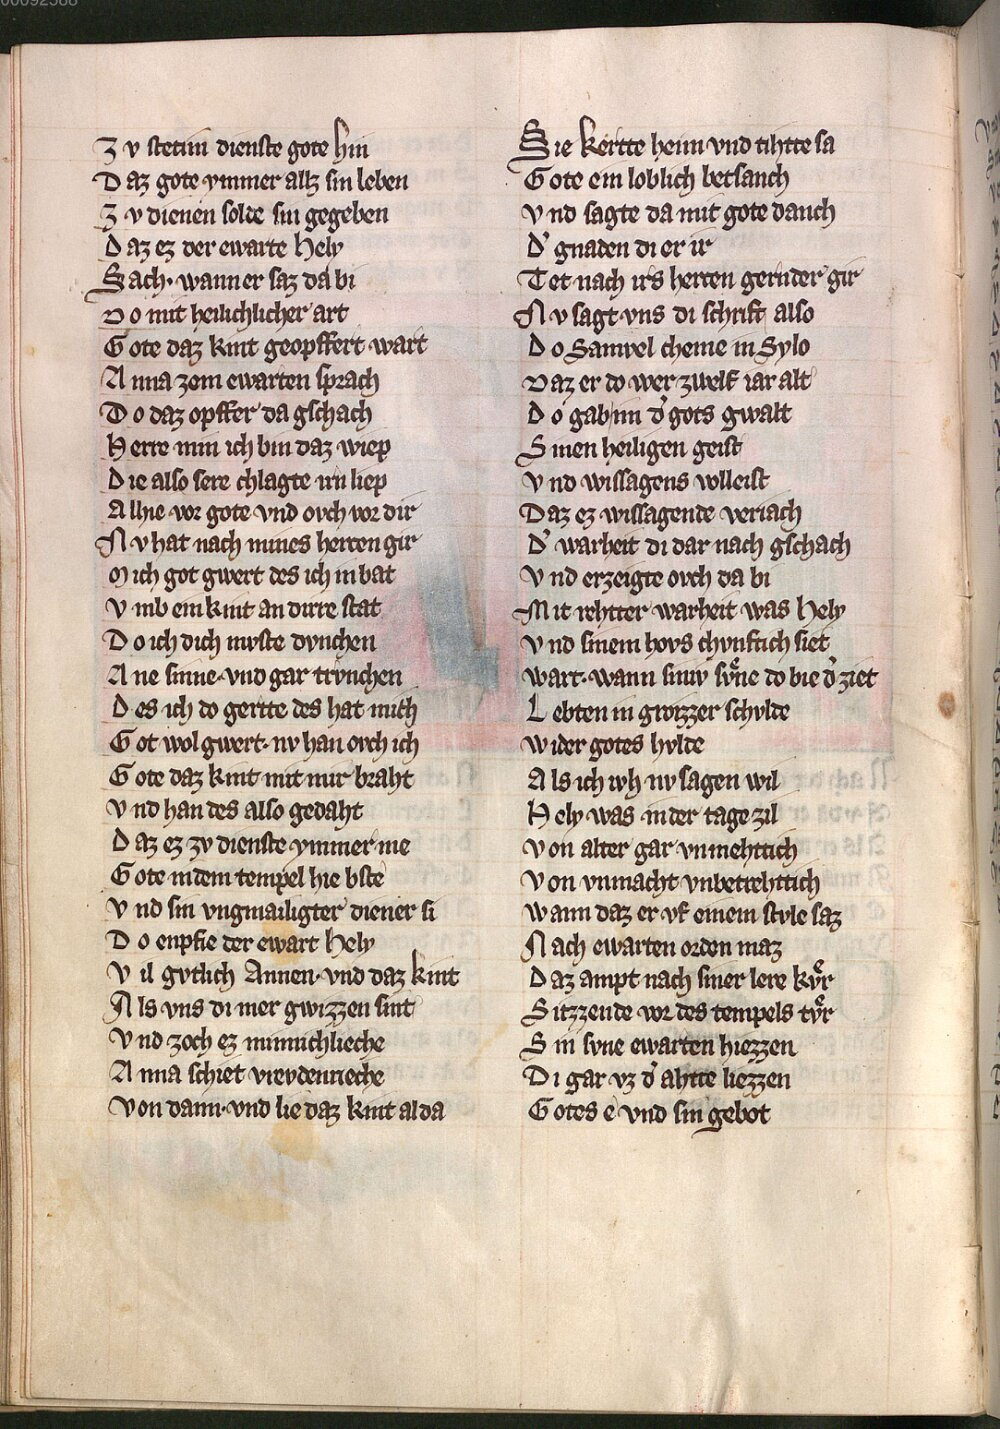 Zv stetim dienste gote hin
Daz gote ymmer allz sin leben
Zv dienen solde sin gegeben
Daz ez der ewarte Hely
Sach· wann er saz da bi
Do mit heilichlicher art
Gote daz kint geopffert wart
Anna zem ewarten sprach
Do daz opffer da gschach
Herre min ich bin daz wiep
Die also sere chlagte irn liep
Allhie vor gote vnd ovch vor dir
Nv hat nach mines herren gir
Mich got gwert des ich in bat
Vmb ein kint an dirre stat
Do ich dich mvste dvnchen
Ane sinne· vnd gar trvnchen
Des ich do gertte des hat mich
Got wol gwert· nv han ovch ich
Gote daz kint mit mir braht
Vnd han des also gedaht
Daz ez zv dienste ymmer me
Gote in dem tempel hie bste
Vnd sin vngmailigter diener si
Do enpfie der ewart Hely
Vil gvtlich Annen· vnd daz kint
Als vns di mer gwizzen sint
Vnd zoch ez minnichlieche
Anna schiet vrevdenrieche
Von dann· vnd lie daz kint al da
Sie kertte heim vnd tihtte sa
Gote ein loblich betsanch
Vnd sagte da mit gote danch
D' gnaden di er ir
Tet nach irs herren gernder gir
Nv sagt vns di schrift also
Do Samvel cheme in Sylo
Daz er do wer zwelf iar alt
Do gab im d' gots gwalt
Sinen heiligen geist
Vnd wissagens volleist
Daz ez wissagende veriach
D' warheit di dar nach gschach
Vnd erzeigte ovch da bi
Mit rehtter warheit was Hely
Vnd sinem hovs chvnftich siet
wart· wann sinv svͤne do bie d' ziet
Lebten in grozzer schvlde
wider gotes hvlde
Als ich ivh nv sagen wil
Hely was in der tage zil
Von alter gar vnmehttich
Von vnmacht vnbetrehttich
wann daz er vf einem stvle saz
Nach ewarten orden maz
Daz ampt nach siner lere kvͤr
Sitzzende vor des tempels tvͤr
Sin svne ewarten hiezzen
Di gar vz d' ahtte liezzen
Gotes e vnd sin gebot